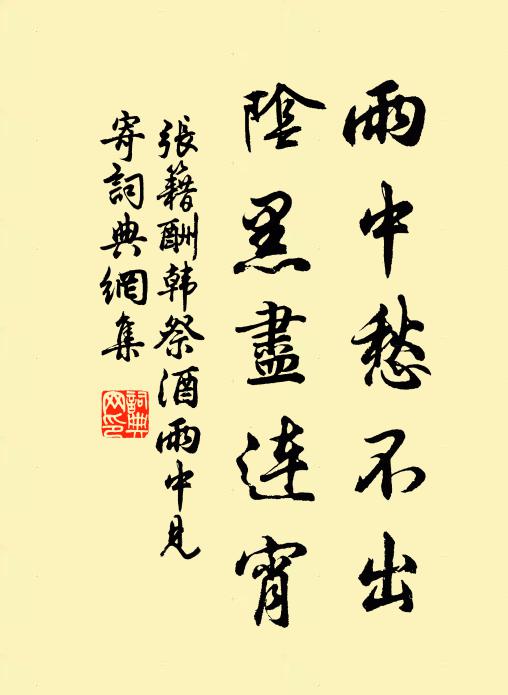 雨中愁不出
陰黑盡連宵
張籍酬韩祭酒雨中見
寄詞典網集
詞典
网印